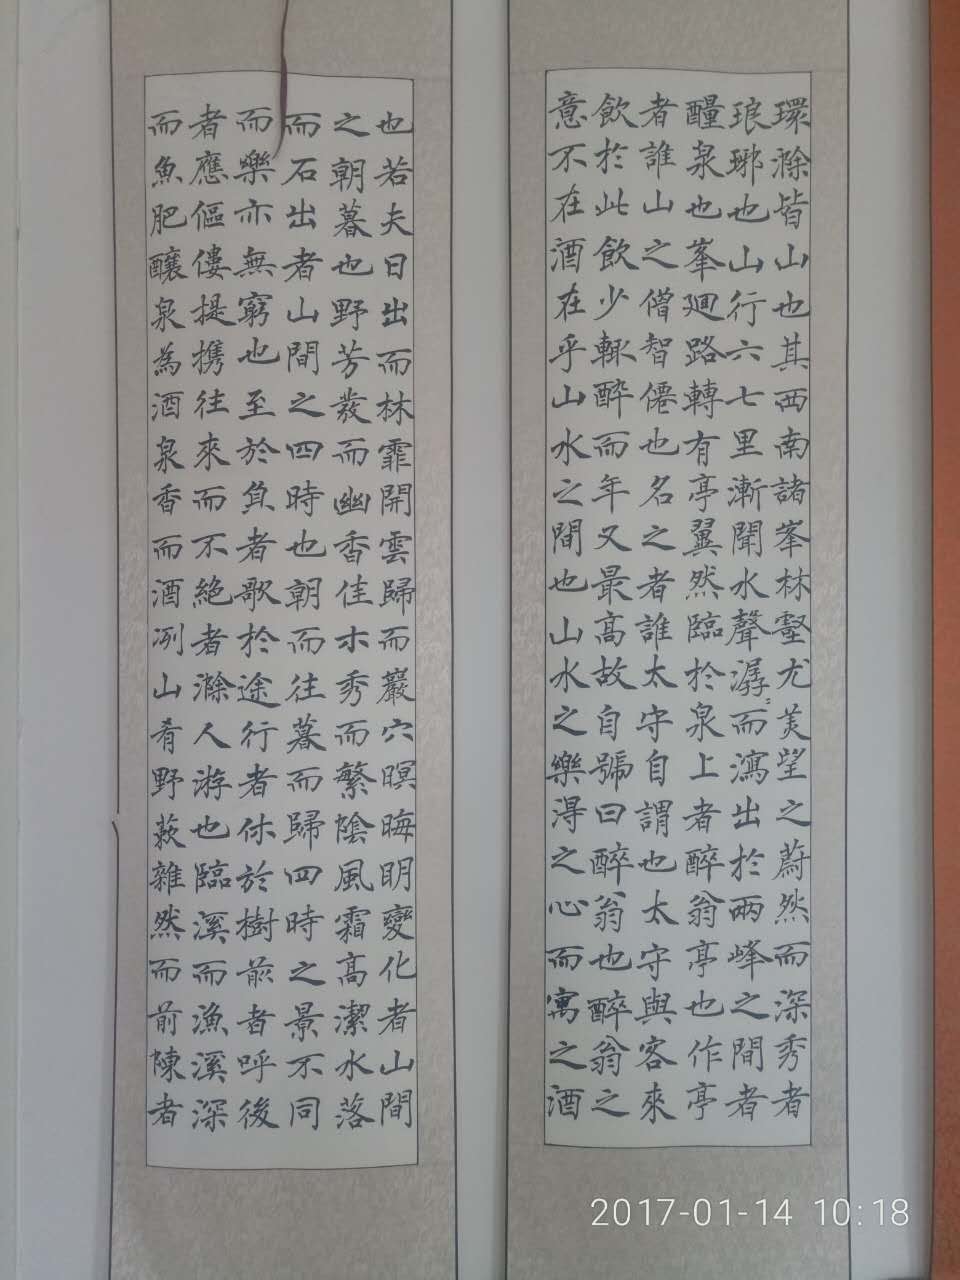 環滁皆山也其西南諸峯林壑尤美望之蔚然而深秀者
琅琊也山行六七里漸聞水聲潺〻而瀉出於兩峰之間者
釀泉也峯廻路轉有亭翼然臨於泉上者醉翁亭也作亭
者誰山之僧智僊也名之者誰太守自謂也太守與客來
飲於此飲少輒醉而年又最高故自號曰醉翁也醉翁之
意不在酒在乎山水之間也山水之樂得之心而寓之酒
也若夫日出而林霏開雲歸而巖穴暝晦明變化者山間
之朝暮也野芳發而幽香佳木秀而繁陰風霜高潔水落
而石出者山間之四時也朝而往暮而歸四時之景不同
而樂亦無窮也至於負者歌於途行者休於樹前者呼後
者應傴僂提携往來而不絶者滁人游也臨溪而漁溪深
而魚肥釀泉為酒泉香而酒冽山肴野蔌雜然而前陳者
2017-01-14 10:18